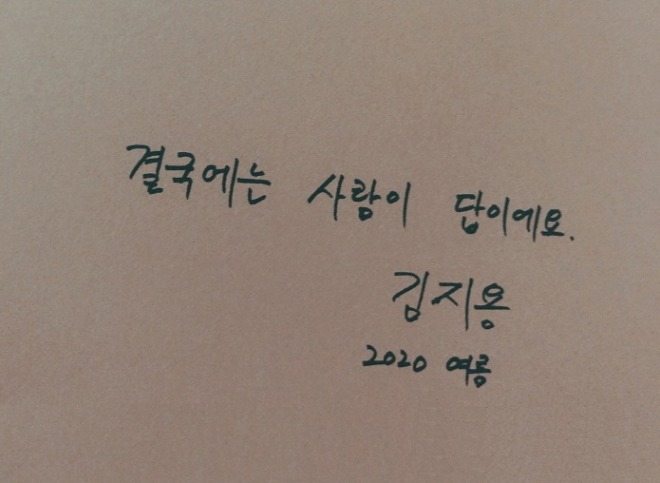 결국에는 사람이 답이에요.
김지용
2020 여름